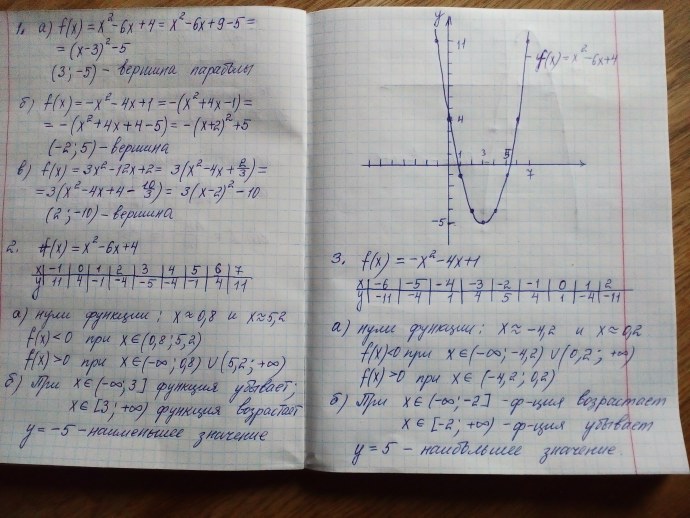 1. а) f(x) = x²-6x+4 = x²-6x+9-5 =
= (x-3)²-5
(3;-5) - вершина параболы
б) f(x) = -x²-4x+1 = -(x²+4x-1) =
= -(x²+4x+4-5) = -(x+2)²+5
(-2;5) - вершина
в) f(x) = 3x²-12x+2 = 3(x²-4x+2/3) =
= 3(x²-4x+4-10/3) = 3(x-2)²-10
(2;-10) - вершина
2. f(x) = x²-6x+4
x | -1 | 0 | 1 | 2 | 3 | 4 | 5 | 6 | 7
y | 11 | 4 | -1 | -4 | -5 | -4 | -1 | 4 | 11
а) нули функции: x≈0,8 и x≈5,2
f(x)<0 при x∈(0,8;5,2)
f(x)>0 при x∈(-∞;0,8)∪(5,2;+∞)
б) При x∈(-∞;3] функция убывает;
x∈[3;+∞) функция возрастает
y = -5 - наименьшее значение
y
11
f(x) = x²-6x+4
4
1 3 5 7
-5
3. f(x) = -x²-4x+1
x | -6 | -5 | -4 | -3 | -2 | -1 | 0 | 1 | 2
y | -11 | -4 | 1 | 4 | 5 | 4 | 1 | -4 | -11
а) нули функции: x≈-4,2 и x≈0,2
f(x)<0 при x∈(-∞;-4,2)∪(0,2;+∞)
f(x)>0 при x∈(-4,2;0,2)
б) При x∈(-∞;-2] - ф-ция возрастает
x∈[-2;+∞) - ф-ция убывает
y = 5 - наибольшее значение.